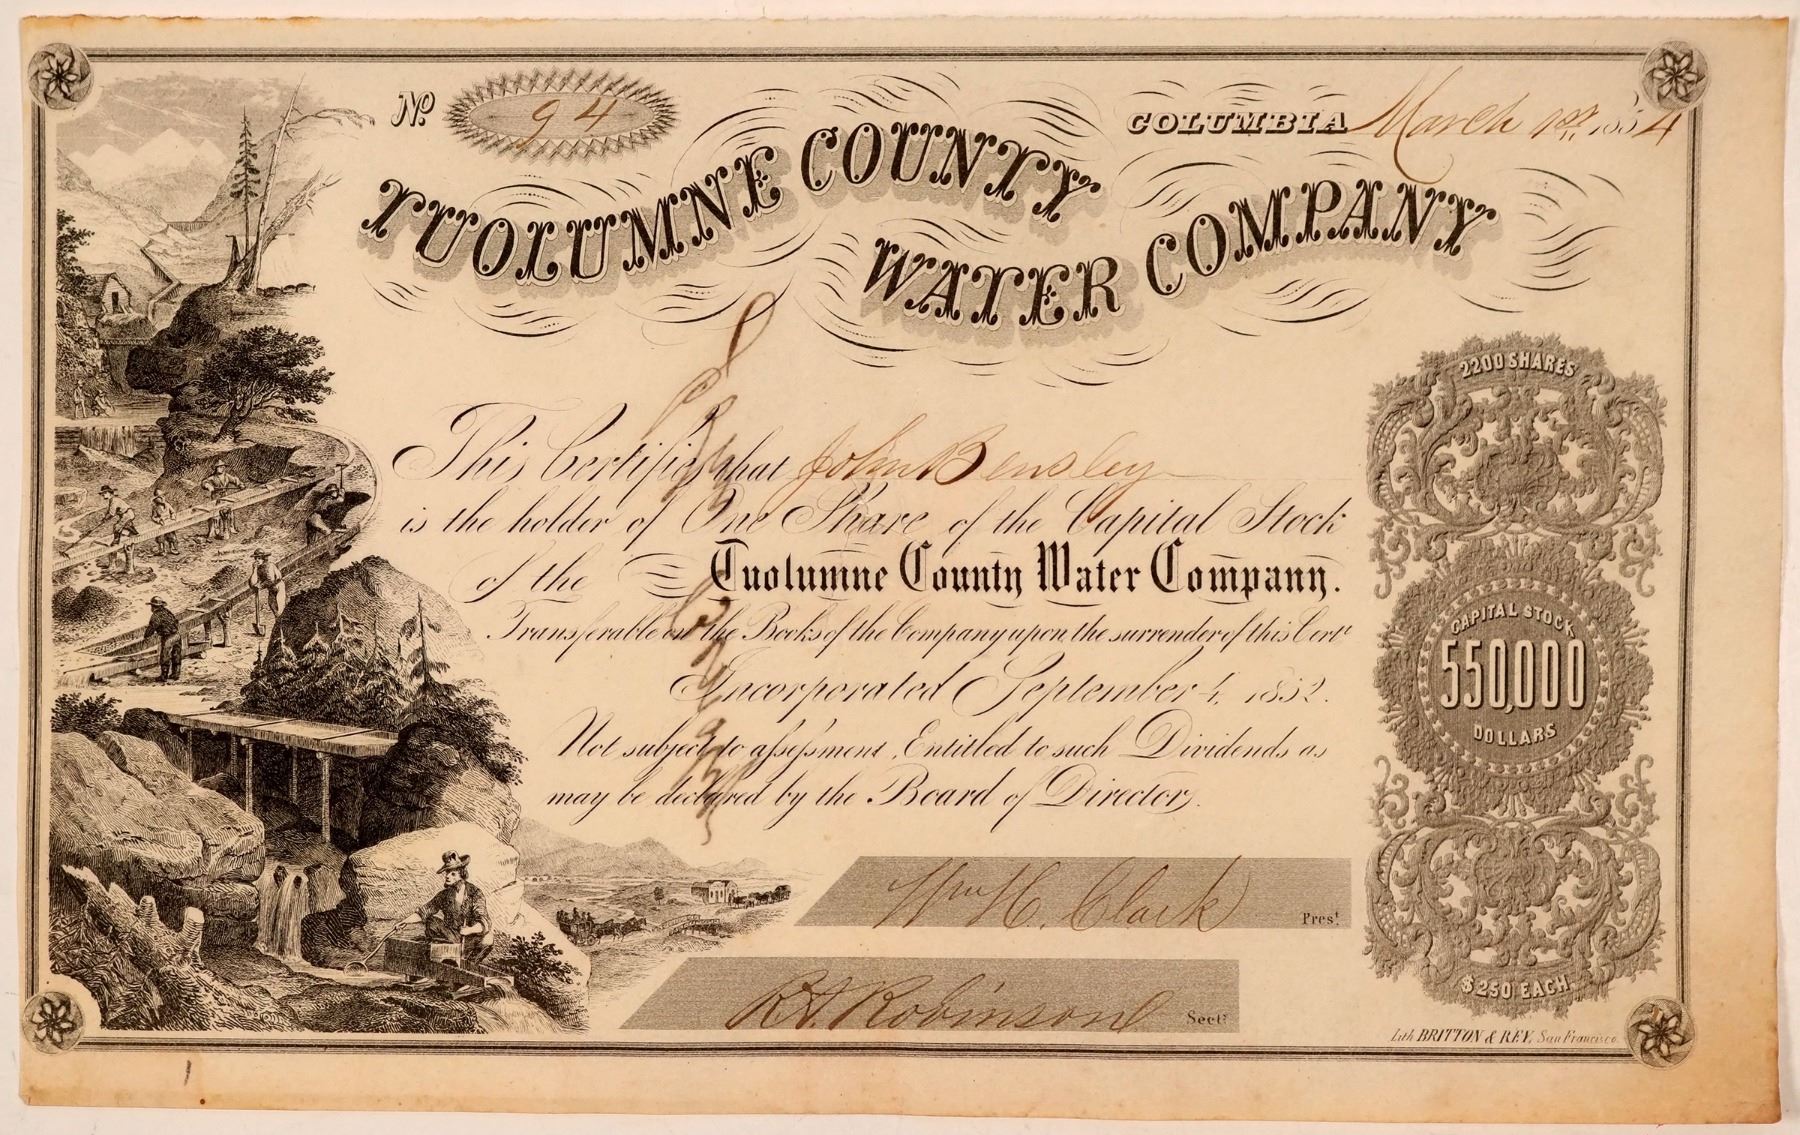 No. 94
COLUMBIA March 1st, 1854
TUOLUMNE COUNTY
WATER COMPANY
2200 SHARES
This Certifies that John Bensley
is the holder of One Share of the Capital Stock
of the Tuolumne County Water Company.
Transferable on the Books of the Company upon the surrender of this Cert.
Incorporated September 4, 1852.
Not subject to assessment, Entitled to such Dividends as
may be declared by the Board of Directors.
CAPITAL STOCK
550,000
DOLLARS
Wm H. Clark Prest
R A Robinson Sect:
$250 EACH
Lith BRITTON & REY, San Francisco.